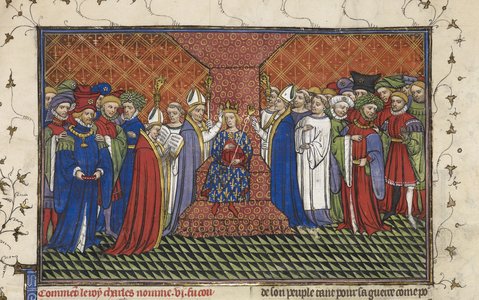 Comment le roy charles nomme .vi. fu con
de son peuple tant pour sa guerre come po